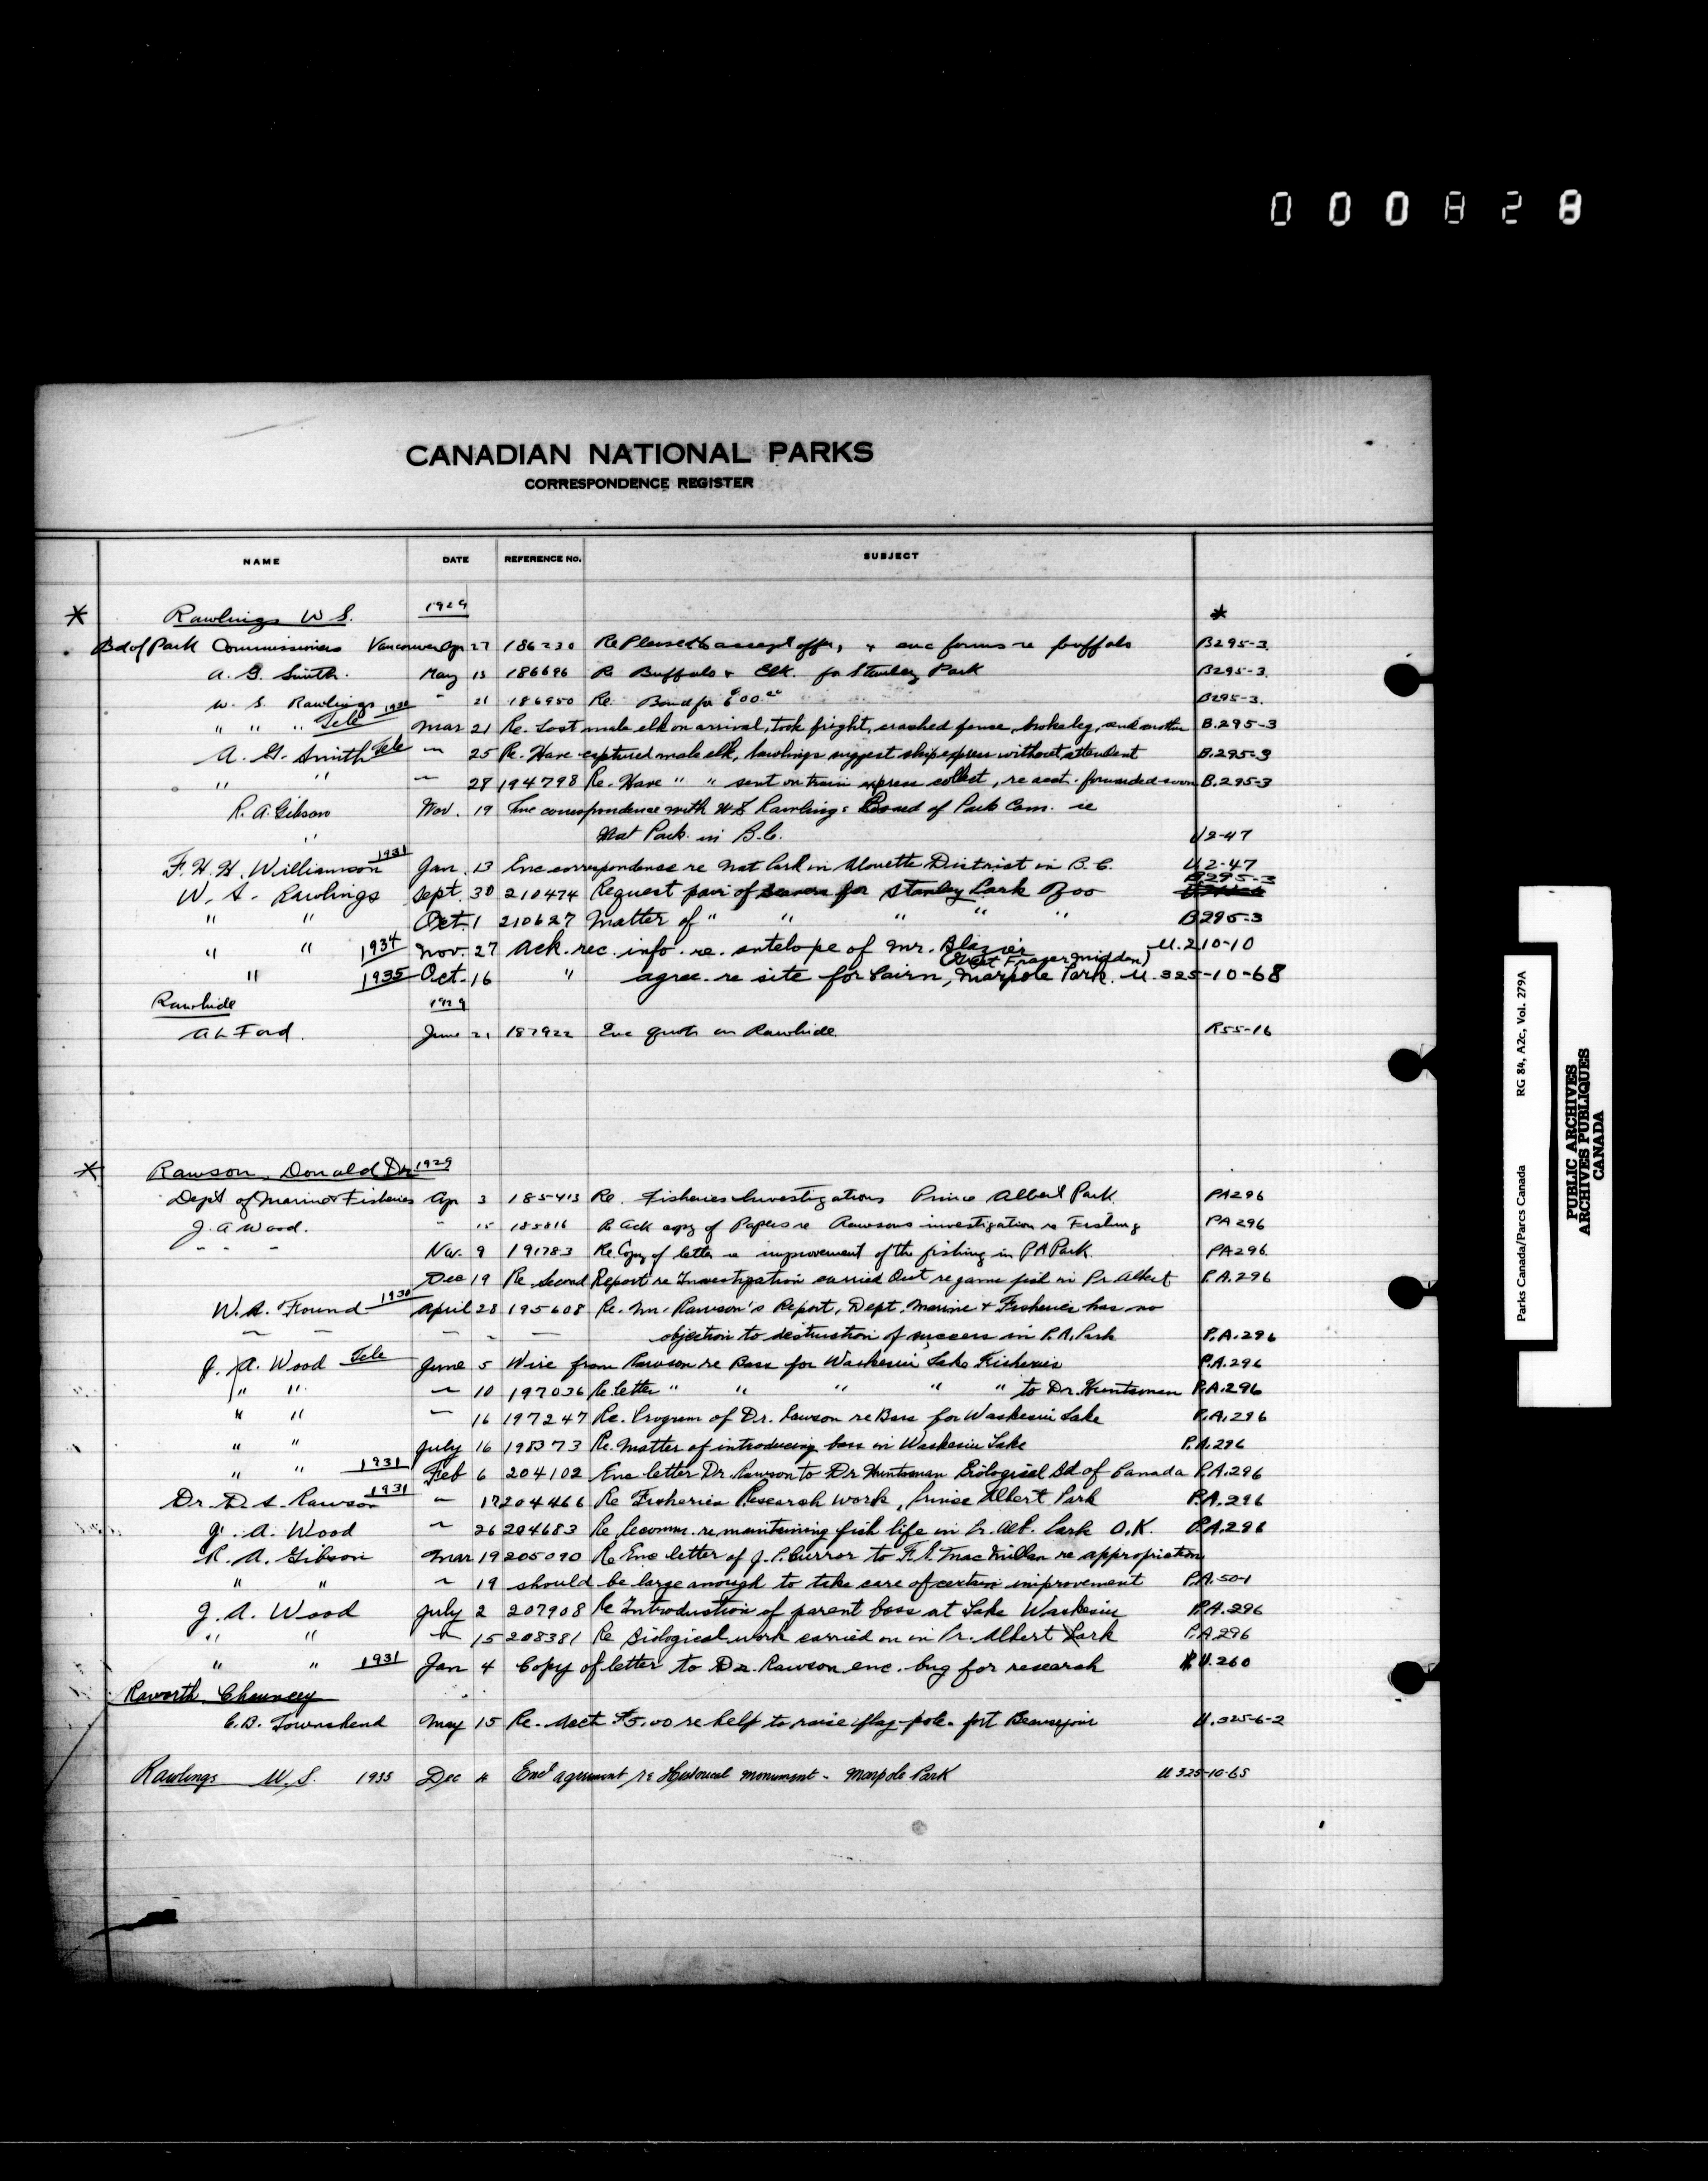 000828
CANADIAN NATIONAL PARKS
CORRESPONDENCE REGISTER
NAME DATE REFERENCE NO. SUBJECT
* Rawlings W S. 1929 *
Bd of Park Commissioners Vancouver Apr 27 186230 Re Pleased to accept offer, + enc forms re buffalo B295-3.
A. G. Smith. May 13 186696 Re Buffalo + Elk. for Stanley Park B295-3.
W. S. Rawlings 1930 " 21 186950 Re. Bond for B295-3.
" " " Tele Mar 21 Re. Lost male elk on arrival, took fright, crashed fence, broke leg, send another B.295-3
A. G. Smith Tele " 25 Re. Have captured male elk, Rawlings suggest ship express without attendent B.295-3
" " " 28 194798 Re. Have " " sent on train express collect, re acct. forwarded soon B.295-3
R. A. Gibson Nov. 19 Enc correspondence with W S Rawlings Board of Park Com. re
" Nat Park in B.C. U2-47
F. H. H. Williamson 1931 Jan. 13 Enc correspondence re Nat Park in Alouette District in B.C. U2-47
B295-3
W. S. Rawlings Sept. 30 210474 Request pair of beavers for Stanley Park Zoo
" " Oct. 1 210627 Matter of " " " " " B295-3
" " 1934 Nov. 27 Ack. rec. info. re. antelope of Mr. Blazier U.210-10
(Great Fraser Midden)
" 1935 Oct. 16 " agree. re site for Cairn, Marpole Park. U.325-10-68
Rawhide 1929
A L Ford. June 21 187922 Enc quote on Rawhide R55-16
* Rawson, Donald Dr. 1929
Dept of Marine & Fisheries Apr 3 185413 Re. Fisheries Investigations Prince Albert Park. PA296
J. A Wood. " 15 185816 Re Ack copy of Papers re Rawsons investigation re Fishing PA296
" " " Nov. 9 191783 Re. Copy of letter re improvement of the fishing in P A Park. PA296
Dec 19 Re. Second Report re Investigation carried Out re game fish in Pr Albert P.A.296
W. A. Found 1930 April 28 195608 Re. Mr. Rawson's Report, Dept. Marine & Fisheries has no
" " " " " objection to destruction of suckers in P.A. Park P.A.296
J. A. Wood Tele June 5 Wire from Rawson re Bass for Waskesiu Lake Fisheries P.A.296
" " " 10 197036 Re. letter " " " " " to Dr. Huntsman P.A.296
" " " 16 197247 Re. Program of Dr. Rawson re Bass for Waskesiu Lake P.A.296
" " July 16 198373 Re. Matter of introducing bass in Waskesiu Lake P.A.296
" " 1931 Feb 6 204102 Enc letter Dr. Rawson to Dr Huntsman Biological Bd of Canada P.A.296
Dr. D. S. Rawson 1931 " 17 204466 Re Fisheries Research Work, Prince Albert Park P.A.296
J. A. Wood " 26 204683 Re Recomm. re maintaining fish life in Pr. Alb. Park O.K. P.A.296
R. A. Gibson Mar 19 205090 Re Enc letter of J. P. Curror to F. P. MacMillan re appropriation
" " " 19 should be large enough to take care of certain improvement P.A.50-1
J. A. Wood July 2 207908 Re Introduction of parent bass at Lake Waskesiu P.A.296
" " " 15 208381 Re Biological work carried on in Pr. Albert Park P.A296
" " 1931 Jan 4 Copy of letter to Dr. Rawson enc. bug for research U.260
Raworth Chauncey
C. B. Townshend May 15 Re. Acct $5.00 re help to raise flag-pole. fort Beausejour U.325-6-2
Rawlings W. S. 1935 Dec 4 Encl agreement re Historical monument - Marpole Park U325-10-65
Parks Canada/Parcs Canada RG 84, A2c, Vol. 279A
PUBLIC ARCHIVES
ARCHIVES PUBLIQUES
CANADA